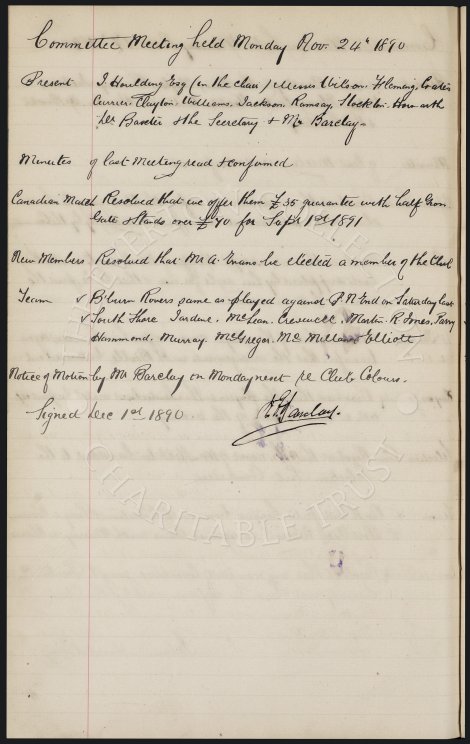 Committee Meeting held Monday Nov. 24th 1890
Present J Houlding Esq (in the chair) Messrs Wilson. Fleming, Coates
Currier. Clayton. Williams. Jackson. Ramsay. Stockton. Howarth
Dr Baxter & the Secretary & Mr Barclay.
Minutes of last Meeting read & confirmed
Canadian Match Resolved that we offer them £35 guarantee with half Grom
Gate & Stands over £70 for Sepr 1st 1891
New Members Resolved that Mr A. Evans be elected a member of the Club
Team v B'burn Rovers same as played against P N End on Saturday last
v South Shore Jardine. McLean. Cresswell. Martin. R Jones. Parry
Hammond. Murray. McGregor. McMillan Elliott
Notice of Motion by Mr Barclay on Monday next re Club Colours.
Signed Dec 1st 1890. Barclay.
CHARITABLE TRUST